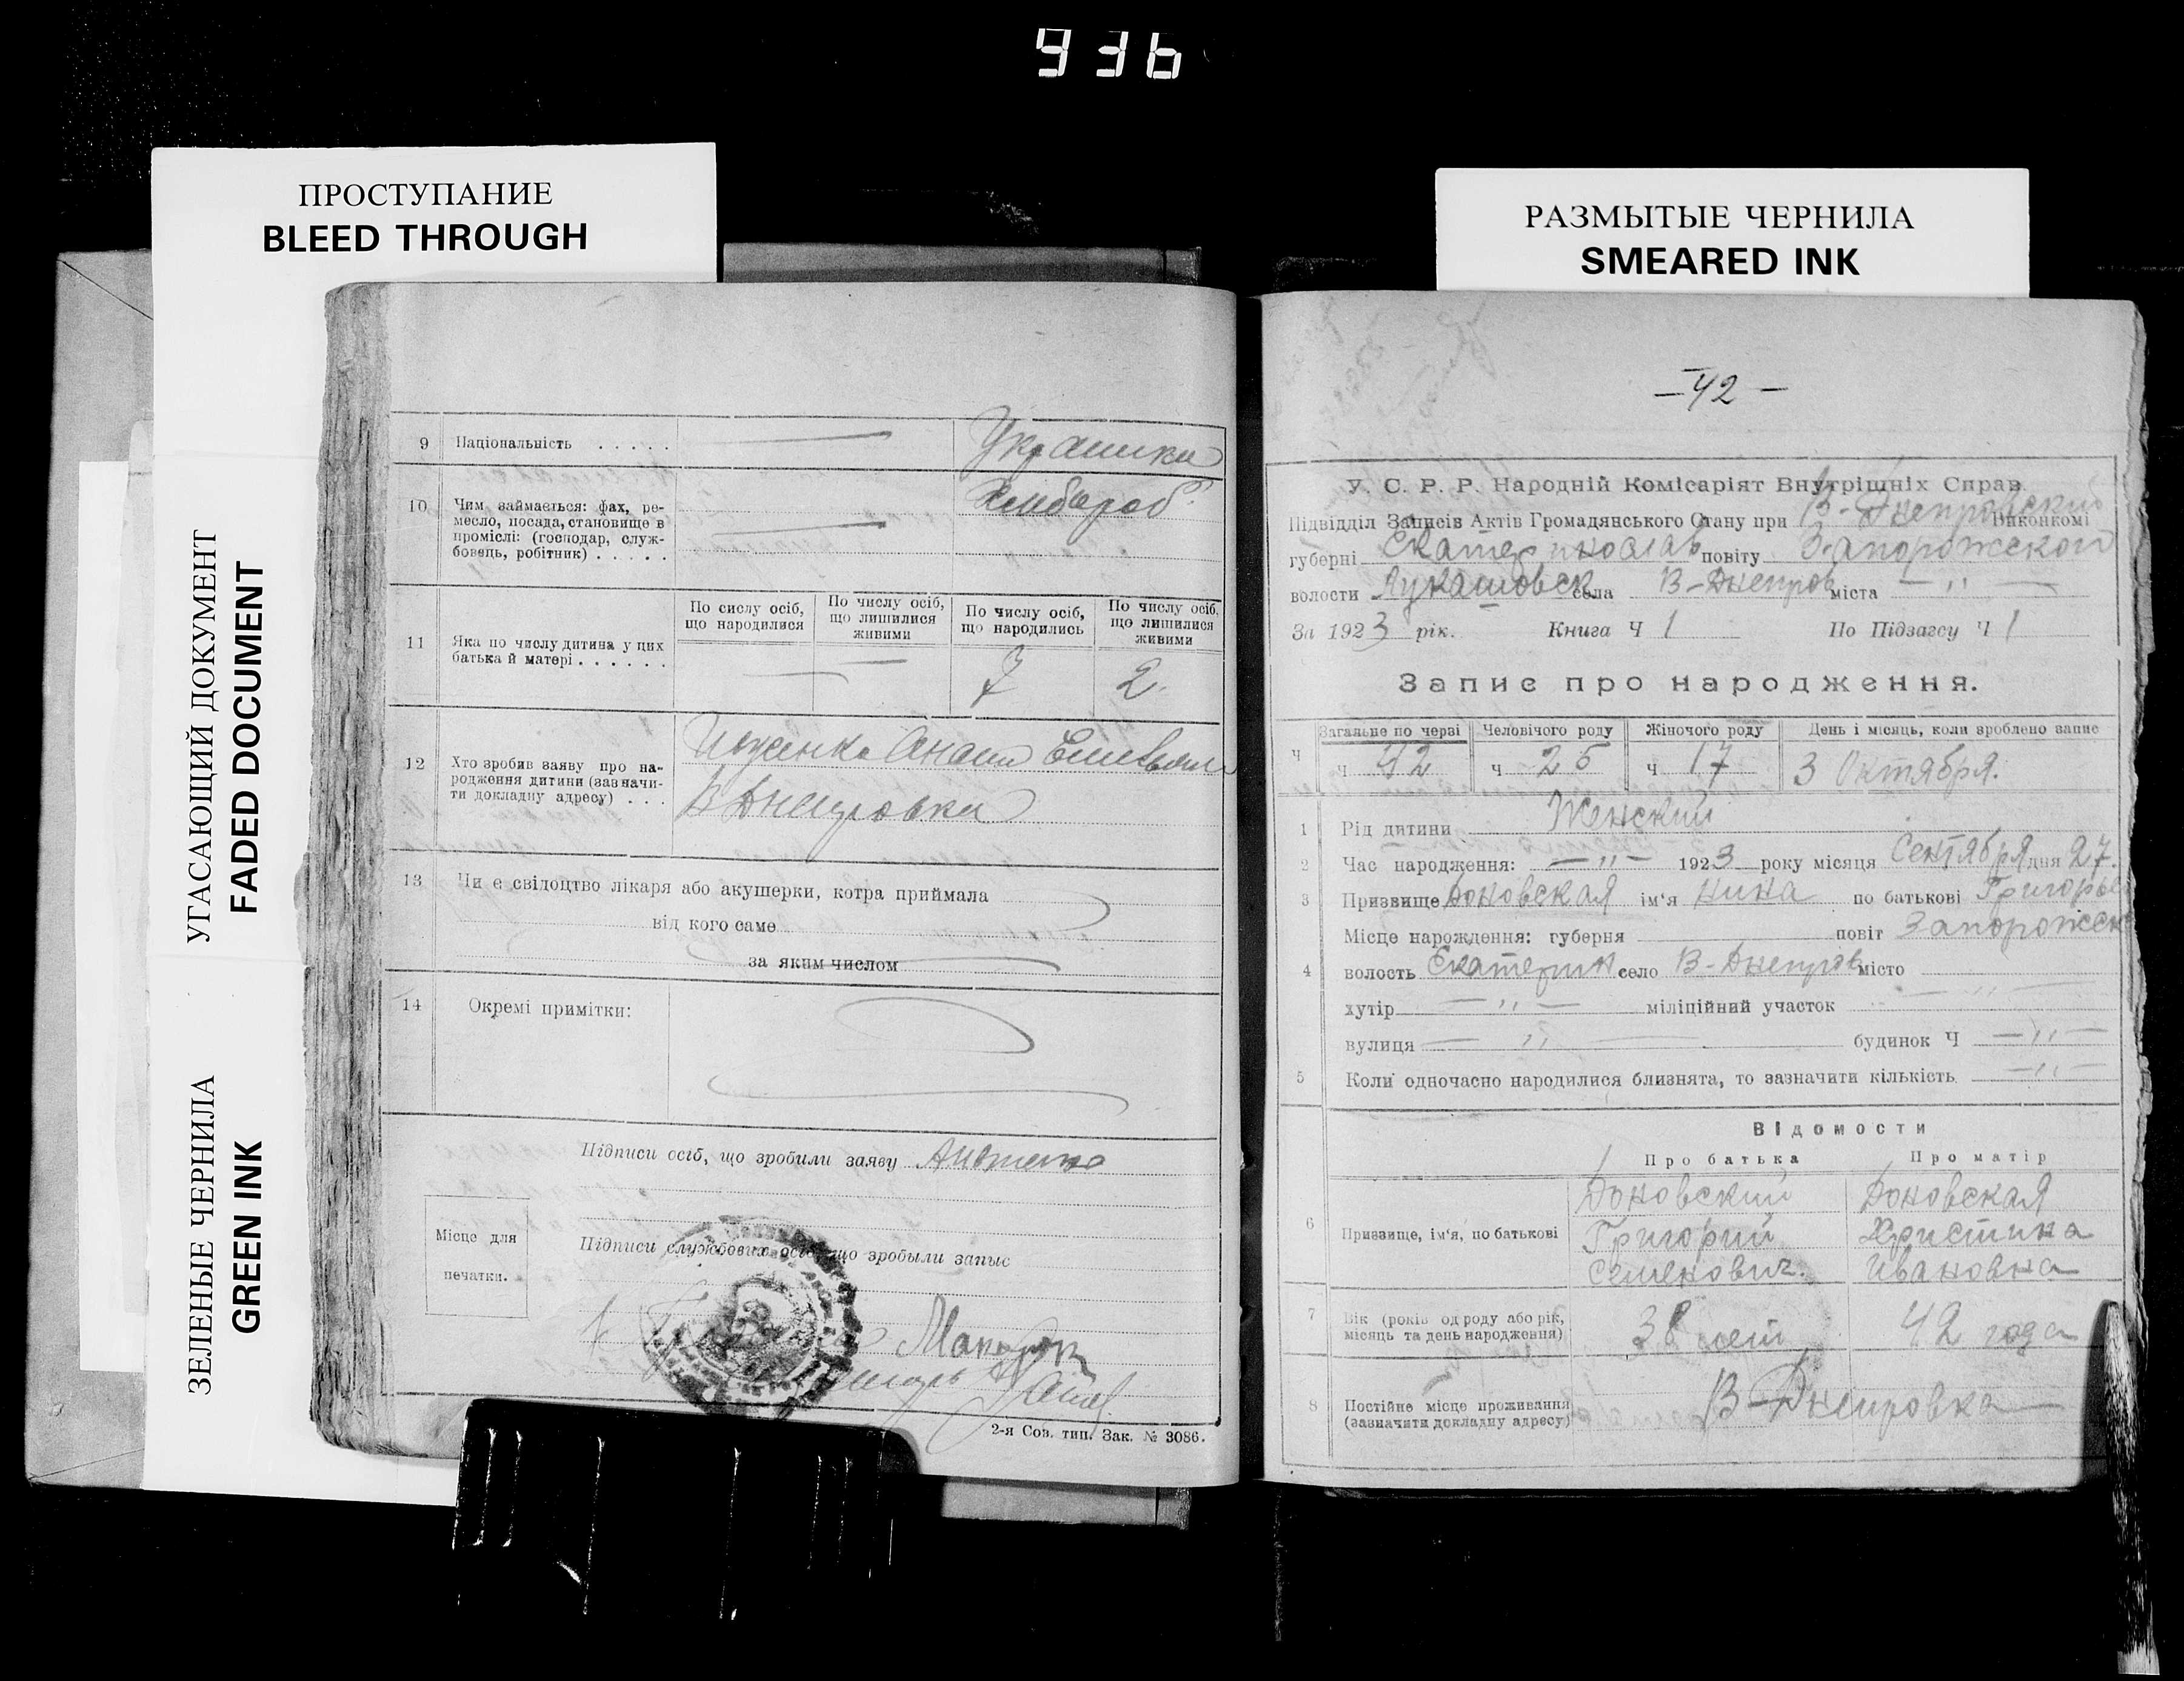 936
ПРОСТУПАНИЕ
BLEED THROUGH
УГАСАЮЩИЙ ДОКУМЕНТ
FADED DOCUMENT
ЗЕЛЕНЫЕ ЧЕРНИЛА
GREEN INK
РАЗМЫТЫЕ ЧЕРНИЛА
SMEARED INK
9 Національність . . . . .
10 Чим займається: фах, ре-
месло, посада, становище в
промислі: (господар, служ-
бовець, робітник) . . . . .
Хлибороб
11 Яка по числу дитина у цих
батька й матері . . . . . .
По сислу осіб,
що народилися
По числу осіб,
що лишилися
живими
По числу осіб,
що народились
По числу осіб,
що лишилися
живими
7 2
12 Хто зробив заяву про на-
родження дитини (зазначи-
ти докладну адресу) . . .
В Днепровка
13 Чи є свідоцтво лікаря або акушерки, котра приймала
від кого саме
за яким числом
14 Окремі примітки:
Підписи осіб, що зробили заяву
Місце для
печатки.
Підписи службових осіб що зробыли запыс
2-я Сов. тип. Зак. № 3086.
— 42 —
У. С. Р. Р. Народній Комісаріят Внутрішніх Справ.
Підвідділ Записів Актів Громадянського Стану при В-Днепровский Виконкомі
губерні Екатеринослав повіту Запорожского
волости Лукашовск села В-Днепров міста — ,, —
За 1923 рік. Книга Ч 1 По Підзагсу Ч 1
Запис про народження.
Загальне по черзі Человічого роду Жіночого роду День і місяць, коли зроблено запис
Ч Ч 42 Ч 25 Ч 17 3 Октября.
1 Рід дитини Женский
2 Час народження: — ,, — 1923 року місяця Сентября дня 27.
3 Призвище Доновская ім'я Нина по батькові Григорьев
Місце нарождення: губерня повіт Запорожск
4 волость Екатерин село В-Днепров місто — ,, —
хутір — ,, — міліційний участок — ,, —
вулиця — ,, — будинок Ч — ,, —
5 Коли одночасно народилися близнята, то зазначити кількість — ,, —
Відомости
Про батька Про матір
6 Призвище, ім'я, по батькові
Доновский
Григорий
Семенович.
Доновская
Христина
Ивановна
7 Вік (років од роду або рік,
місяць та день народження)
38 лет 42 года
8 Постійне місце проживання
(зазначити докладну адресу)
В-Днепровка